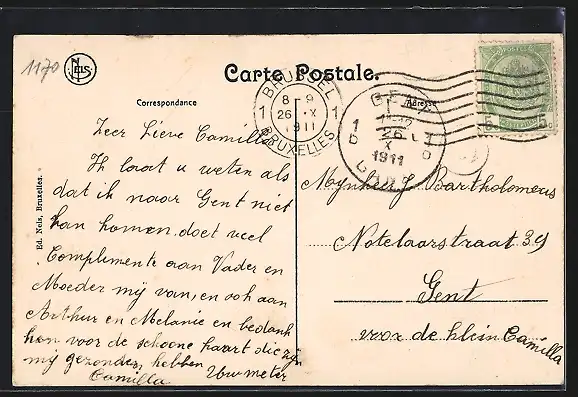 1170
NELS
Carte Postale.
Correspondance
Adresse
BRUSSEL
1 8-9 1
26 X
1911
BRUXELLES
GENT
1 26
D X D
1911
GAND
5c 5c
Ed. Nels, Bruxelles.
Zeer Lieve Camilla
Ik laat u weten als
dat ik naar Gent niet
kan komen. doet veel
Complimente aan Vader en
Moeder mij van, en ook aan
Arthur en Melanie en bedank
hen voor de schoone kaart die zij
mij gezonden hebben
Camilla Uw meter
Mynheer J Bartholomeus
Notelaarstraat 39
Gent
voor de klein Camilla